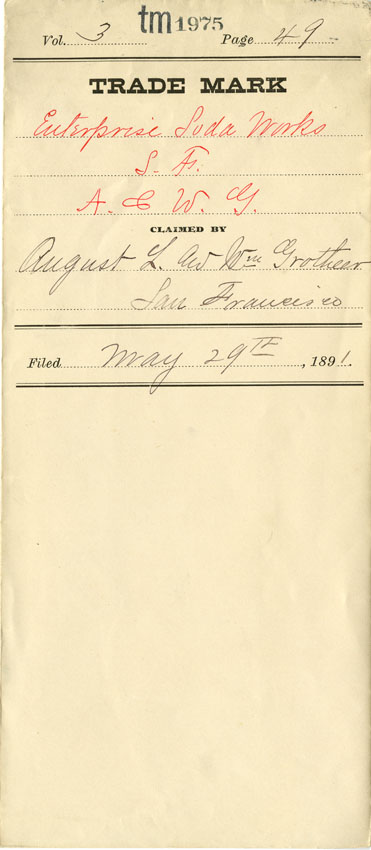 tm 1975
Vol. 3 Page 49
TRADE MARK
Enterprise Soda Works
S. F.
A. & W. G.
CLAIMED BY
August L. Wm Grotheer
San Francisco
Filed May 29TH, 1891.